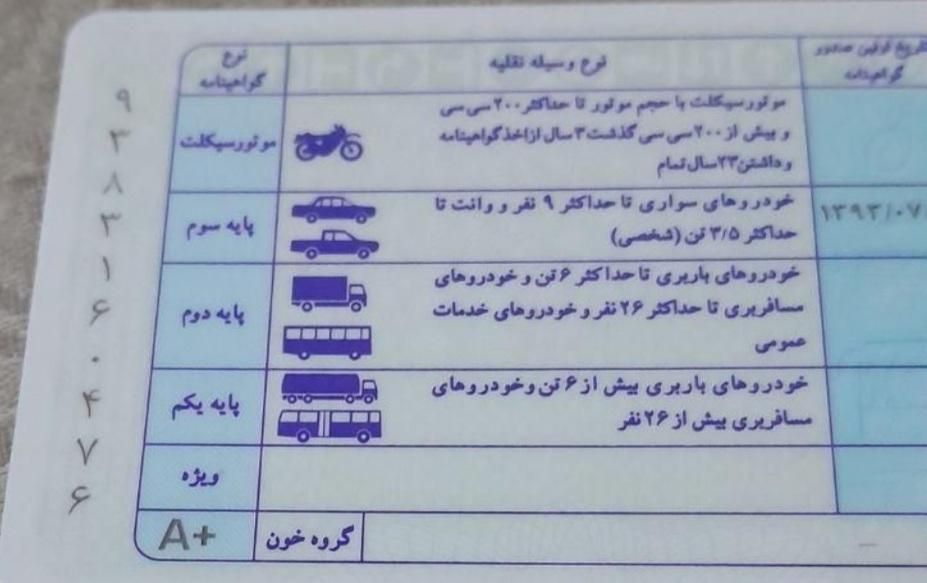 نوع گواهینامه
نوع وسیله نقلیه
تاریخ اولین صدور گواهینامه
موتورسیکلت
موتورسیکلت با حجم موتور تا حداکثر ۲۰۰ سی سی
و بیش از ۲۰۰ سی سی گذشت ۳ سال از اخذ گواهینامه
و داشتن ۲۳ سال تمام
پایه سوم
خودروهای سواری تا حداکثر ۹ نفر و وانت تا
حداکثر ۳/۵ تن (شخصی)
۱۳۹۳/۰۷/
پایه دوم
خودروهای باربری تا حداکثر ۶ تن و خودروهای
مسافربری تا حداکثر ۲۶ نفر و خودروهای خدمات
عمومی
پایه یکم
خودروهای باربری بیش از ۶ تن و خودروهای
مسافربری بیش از ۲۶ نفر
ویژه
گروه خون
A+
۹
۳
۸
۳
۱
۶
۰
۴
۷
۶